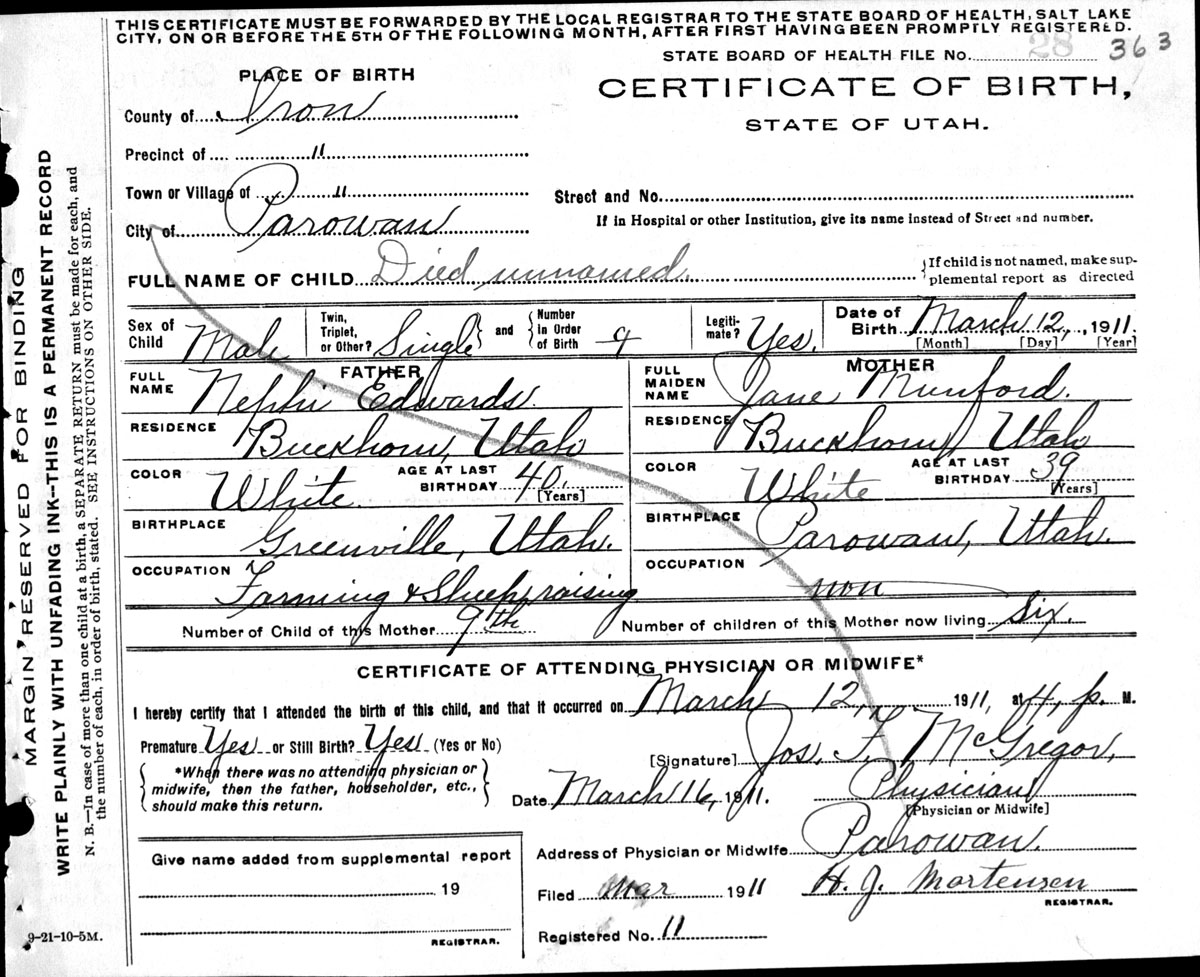 THIS CERTIFICATE MUST BE FORWARDED BY THE LOCAL REGISTRAR TO THE STATE BOARD OF HEALTH, SALT LAKE
CITY, ON OR BEFORE THE 5TH OF THE FOLLOWING MONTH, AFTER FIRST HAVING BEEN PROMPTLY REGISTERED.
STATE BOARD OF HEALTH FILE No. 28 363
PLACE OF BIRTH
CERTIFICATE OF BIRTH,
STATE OF UTAH.
County of Iron
Precinct of "
Town or Village of "
Street and No.
City of Parowan
If in Hospital or other Institution, give its name instead of Street and number.
FULL NAME OF CHILD Died unnamed.
If child is not named, make sup-
plemental report as directed
Sex of Child Male
Twin, Triplet, or Other? Single and Number in Order of Birth 9
Legiti-mate? Yes.
Date of Birth March 12, 1911.
[Month] [Day] [Year]
FATHER
FULL NAME Nephi Edwards.
MOTHER
FULL MAIDEN NAME Jane Munford.
RESIDENCE Buckhorn, Utah
RESIDENCE Buckhorn, Utah
COLOR White. AGE AT LAST BIRTHDAY 40. [Years]
COLOR White AGE AT LAST BIRTHDAY 39 [Years]
BIRTHPLACE Greenville, Utah.
BIRTHPLACE Parowan, Utah.
OCCUPATION Farming & Sheepraising
OCCUPATION non
Number of Child of this Mother 9th
Number of children of this Mother now living Six.
CERTIFICATE OF ATTENDING PHYSICIAN OR MIDWIFE*
I hereby certify that I attended the birth of this child, and that it occurred on March 12, 1911, at 4, p. M.
Premature Yes or Still Birth? Yes (Yes or No)
[Signature] Jos. F. McGregor,
*When there was no attending physician or
midwife, then the father, householder, etc.,
should make this return.
Date March 16, 1911. Physician
[Physician or Midwife]
Give name added from supplemental report
19
REGISTRAR.
Address of Physician or Midwife Parowan.
Filed Mar 1911 H. J. Mortensen
REGISTRAR.
Registered No. 11
9-21-10-5M.
MARGIN RESERVED FOR BINDING
WRITE PLAINLY WITH UNFADING INK--THIS IS A PERMANENT RECORD
N. B.—In case of more than one child at a birth, a SEPARATE RETURN must be made for each, and
the number of each, in order of birth, stated. SEE INSTRUCTIONS ON OTHER SIDE.